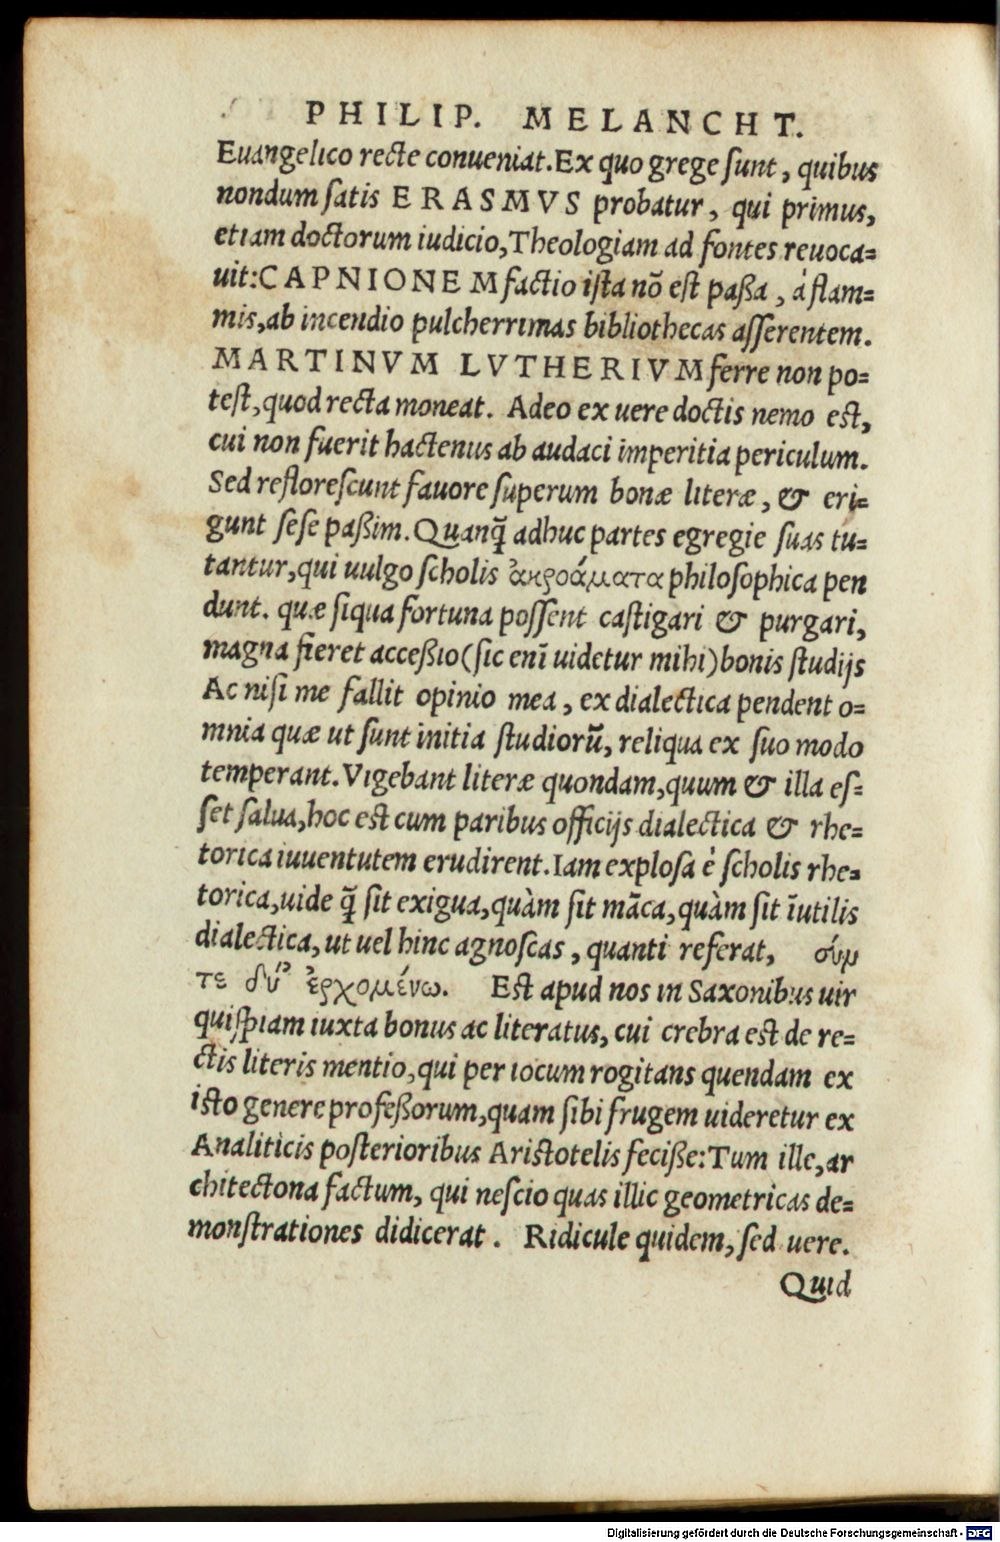 PHILIP. MELANCHT.
Euangelico recte conueniat. Ex quo grege ſunt, quibus
nondum ſatis ERASMVS probatur, qui primus,
etiam doctorum iudicio, Theologiam ad fontes reuoca=
uit: CAPNIONEM factio iſta nõ eſt paßa, à flam=
mis, ab incendio pulcherrimas bibliothecas aſſerentem.
MARTINVM LVTHERIVM ferre non po=
teſt, quod recta moneat. Adeo ex uere doctis nemo eſt,
cui non fuerit hactenus ab audaci imperitia periculum.
Sed refloreſcunt fauore ſuperum bonæ literæ, & eri=
gunt ſeſe paßim. Quanq̃ adhuc partes egregie ſuas tu=
tantur, qui uulgo ſcholis ἀκροάματα philoſophica pen
dunt. quæ ſiqua fortuna poſſent caſtigari & purgari,
magna fieret acceßio (ſic enĩ uidetur mihi) bonis ſtudijs
Ac niſi me fallit opinio mea, ex dialectica pendent o=
mnia quæ ut ſunt initia ſtudiorũ, reliqua ex ſuo modo
temperant. Vigebant literæ quondam, quum & illa eſ=
ſet ſalua, hoc eſt cum paribus officijs dialectica & rhe=
torica iuuentutem erudirent. Iam exploſa è ſcholis rhe=
torica, uide q̃ ſit exigua, quàm ſit mãca, quàm ſit ĩutilis
dialectica, ut uel hinc agnoſcas, quanti referat, σύμ
τε δύ' ἐρχομένω. Eſt apud nos in Saxonibus uir
quiſpiam iuxta bonus ac literatus, cui crebra eſt de re=
ctis literis mentio, qui per iocum rogitans quendam ex
iſto genere profeßorum, quam ſibi frugem uideretur ex
Analiticis poſterioribus Ariſtotelis feciße: Tum ille, ar
chitectona factum, qui neſcio quas illic geometricas de=
monſtrationes didicerat. Ridicule quidem, ſed uere.
Quid
Digitalisierung gefördert durch die Deutsche Forschungsgemeinschaft - DFG